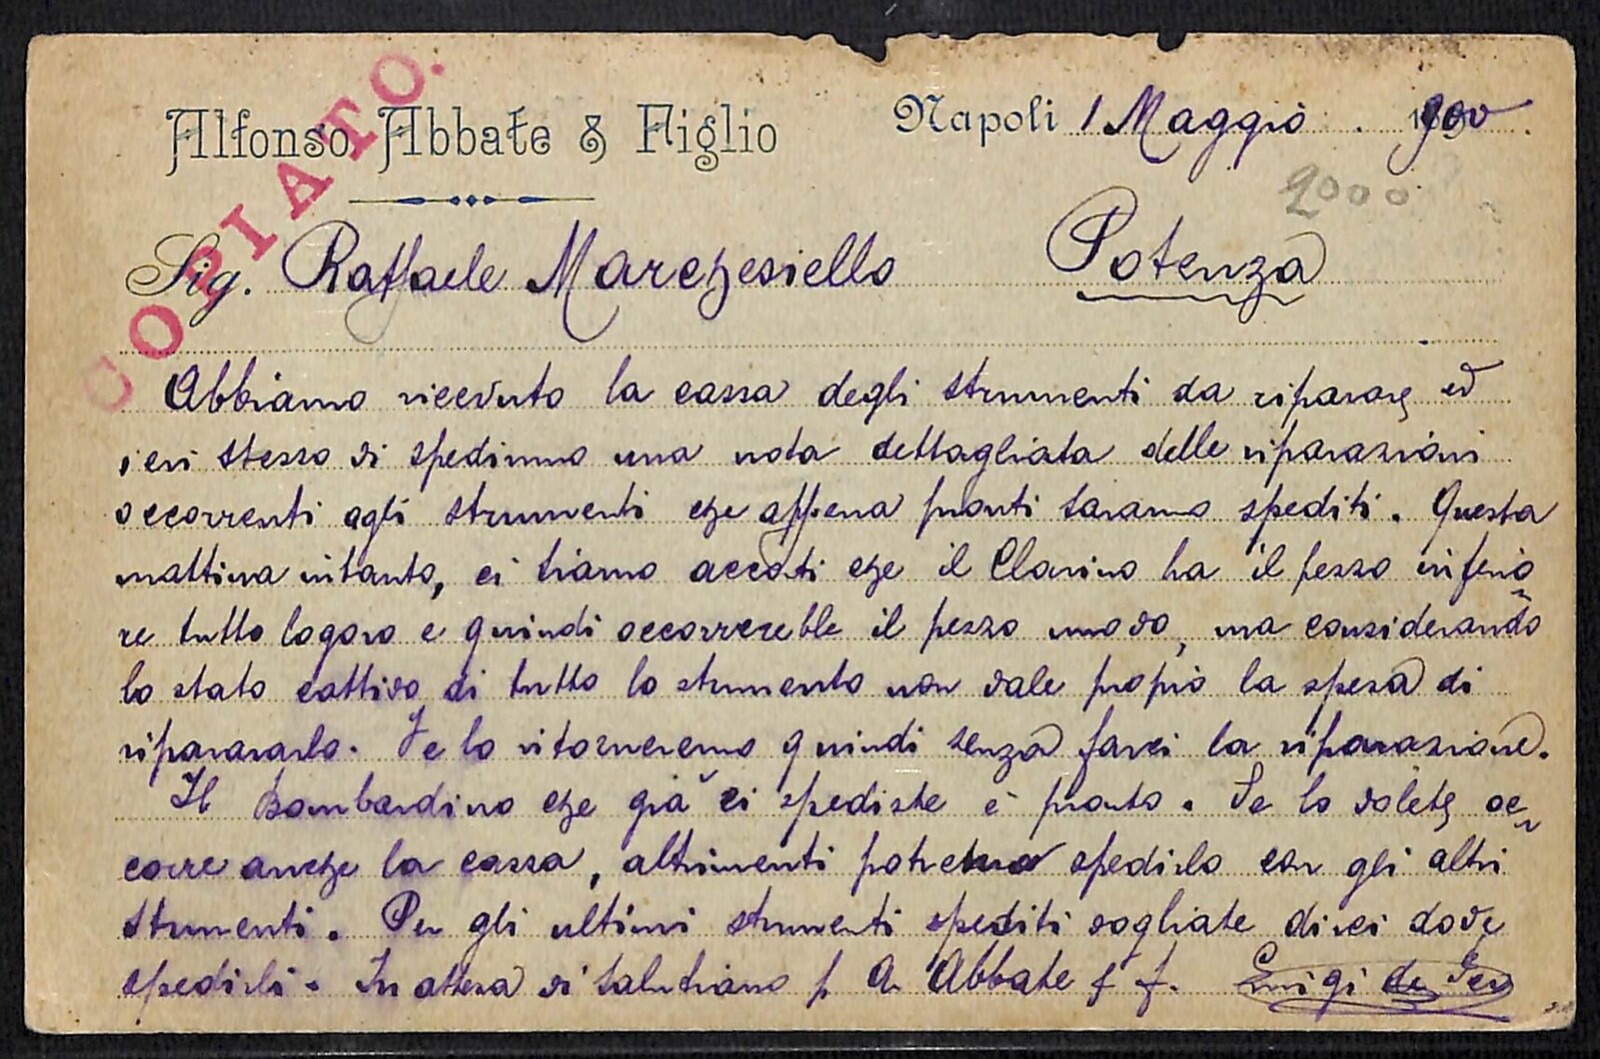 COPIATO.
Alfonso Abbate & Figlio
Napoli 1 Maggio 900
2000
Sig. Raffaele Marchesiello Potenza
Abbiamo ricevuto la cassa degli strumenti da riparare ed
ieri stesso vi spedimmo una nota dettagliata delle riparazioni
occorrenti agli strumenti che appena pronti saranno spediti. Questa
mattina intanto, ci siamo accorti che il Clarino ha il pezzo inferio
re tutto logoro e quindi occorrerebbe il pezzo nuovo, ma considerando
lo stato cattivo di tutto lo strumento non vale proprio la spesa di
ripararlo. Ve lo ritorneremo quindi senza farci la riparazione.
Il Bombardino che già ci spediste è pronto. Se lo volete oc
corre anche la cassa, altrimenti potremo spedirlo con gli altri
strumenti. Per gli ultimi strumenti spediti vogliate dirci dove
spedirli. In attesa vi salutiamo p A. Abbate f f. Luigi de